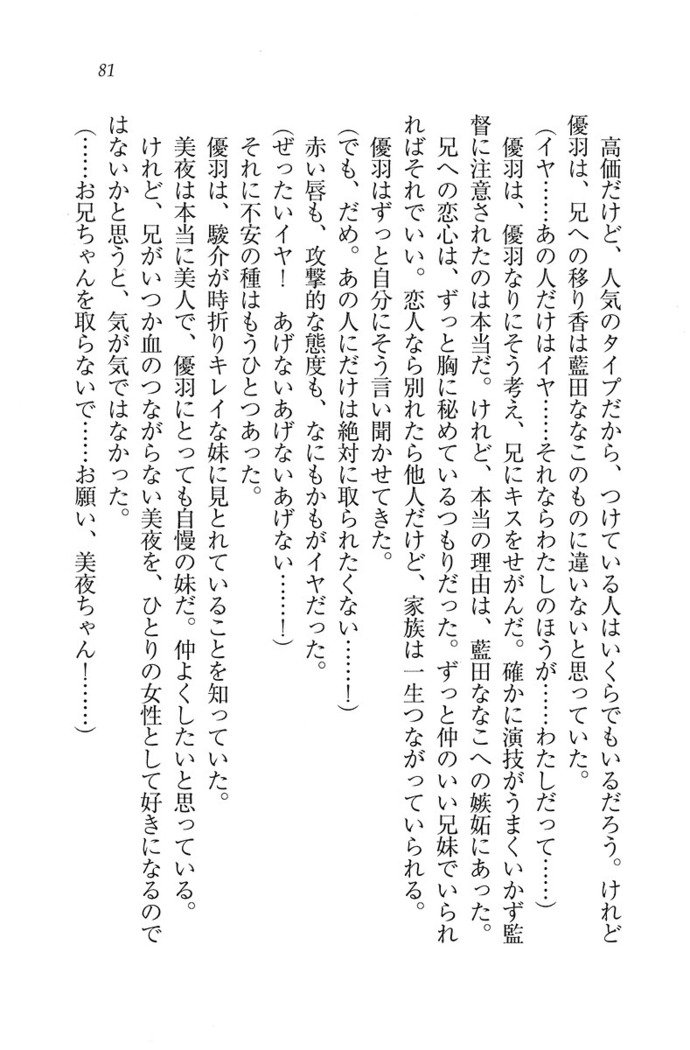 81
高価だけど、人気のタイプだから、つけている人はいくらでもいるだろう。けれど
優羽は、兄への移り香は藍田ななこのものに違いないと思っていた。
(イヤ……あの人だけはイヤ……それならわたしのほうが……わたしだって……)
優羽は、優羽なりにそう考え、兄にキスをせがんだ。確かに演技がうまくいかず監
督に注意されたのは本当だ。けれど、本当の理由は、藍田ななこへの嫉妬にあった。
兄への恋心は、ずっと胸に秘めているつもりだった。ずっと仲のいい兄妹でいられ
ればそれでいい。恋人なら別れたら他人だけど、家族は一生つながっていられる。
優羽はずっと自分にそう言い聞かせてきた。
(でも、だめ。あの人にだけは絶対に取られたくない……!)
赤い唇も、攻撃的な態度も、なにもかもがイヤだった。
(ぜったいイヤ! あげないあげないあげない……!)
それに不安の種はもうひとつあった。
優羽は、駿介が時折りキレイな妹に見とれていることを知っていた。
美夜は本当に美人で、優羽にとっても自慢の妹だ。仲よくしたいと思っている。
けれど、兄がいつか血のつながらない美夜を、ひとりの女性として好きになるので
はないかと思うと、気が気ではなかった。
(……お兄ちゃんを取らないで……お願い、美夜ちゃん!……)